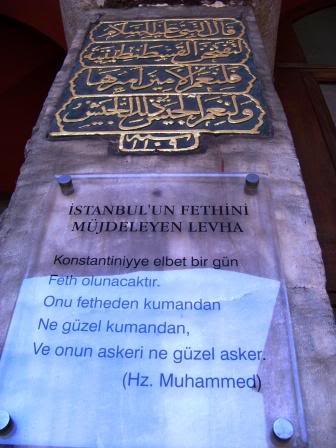 قال النبي عليه السلام
لتفتحن القسطنطينية
فلنعم الامير اميرها
ولنعم الجيش ذلك الجيش
İSTANBUL'UN FETHİNİ
MÜJDELEYEN LEVHA
Konstantiniyye elbet bir gün
Feth olunacaktır.
Onu fetheden kumandan
Ne güzel kumandan,
Ve onun askeri ne güzel asker.
(Hz. Muhammed)